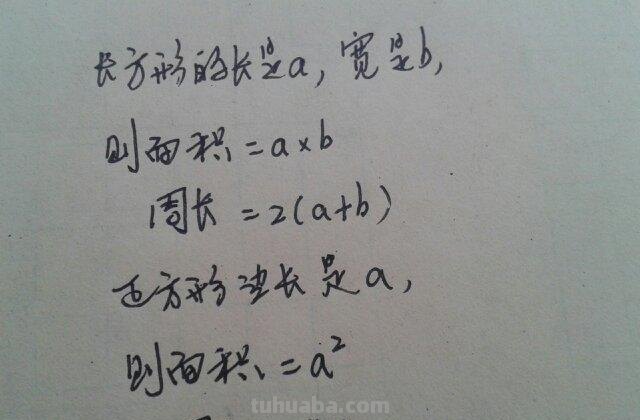 长方形的长是a,宽是b,
则面积=a×b
周长=2(a+b)
正方形边长是a,
则面积=a²
tuhuaba.com